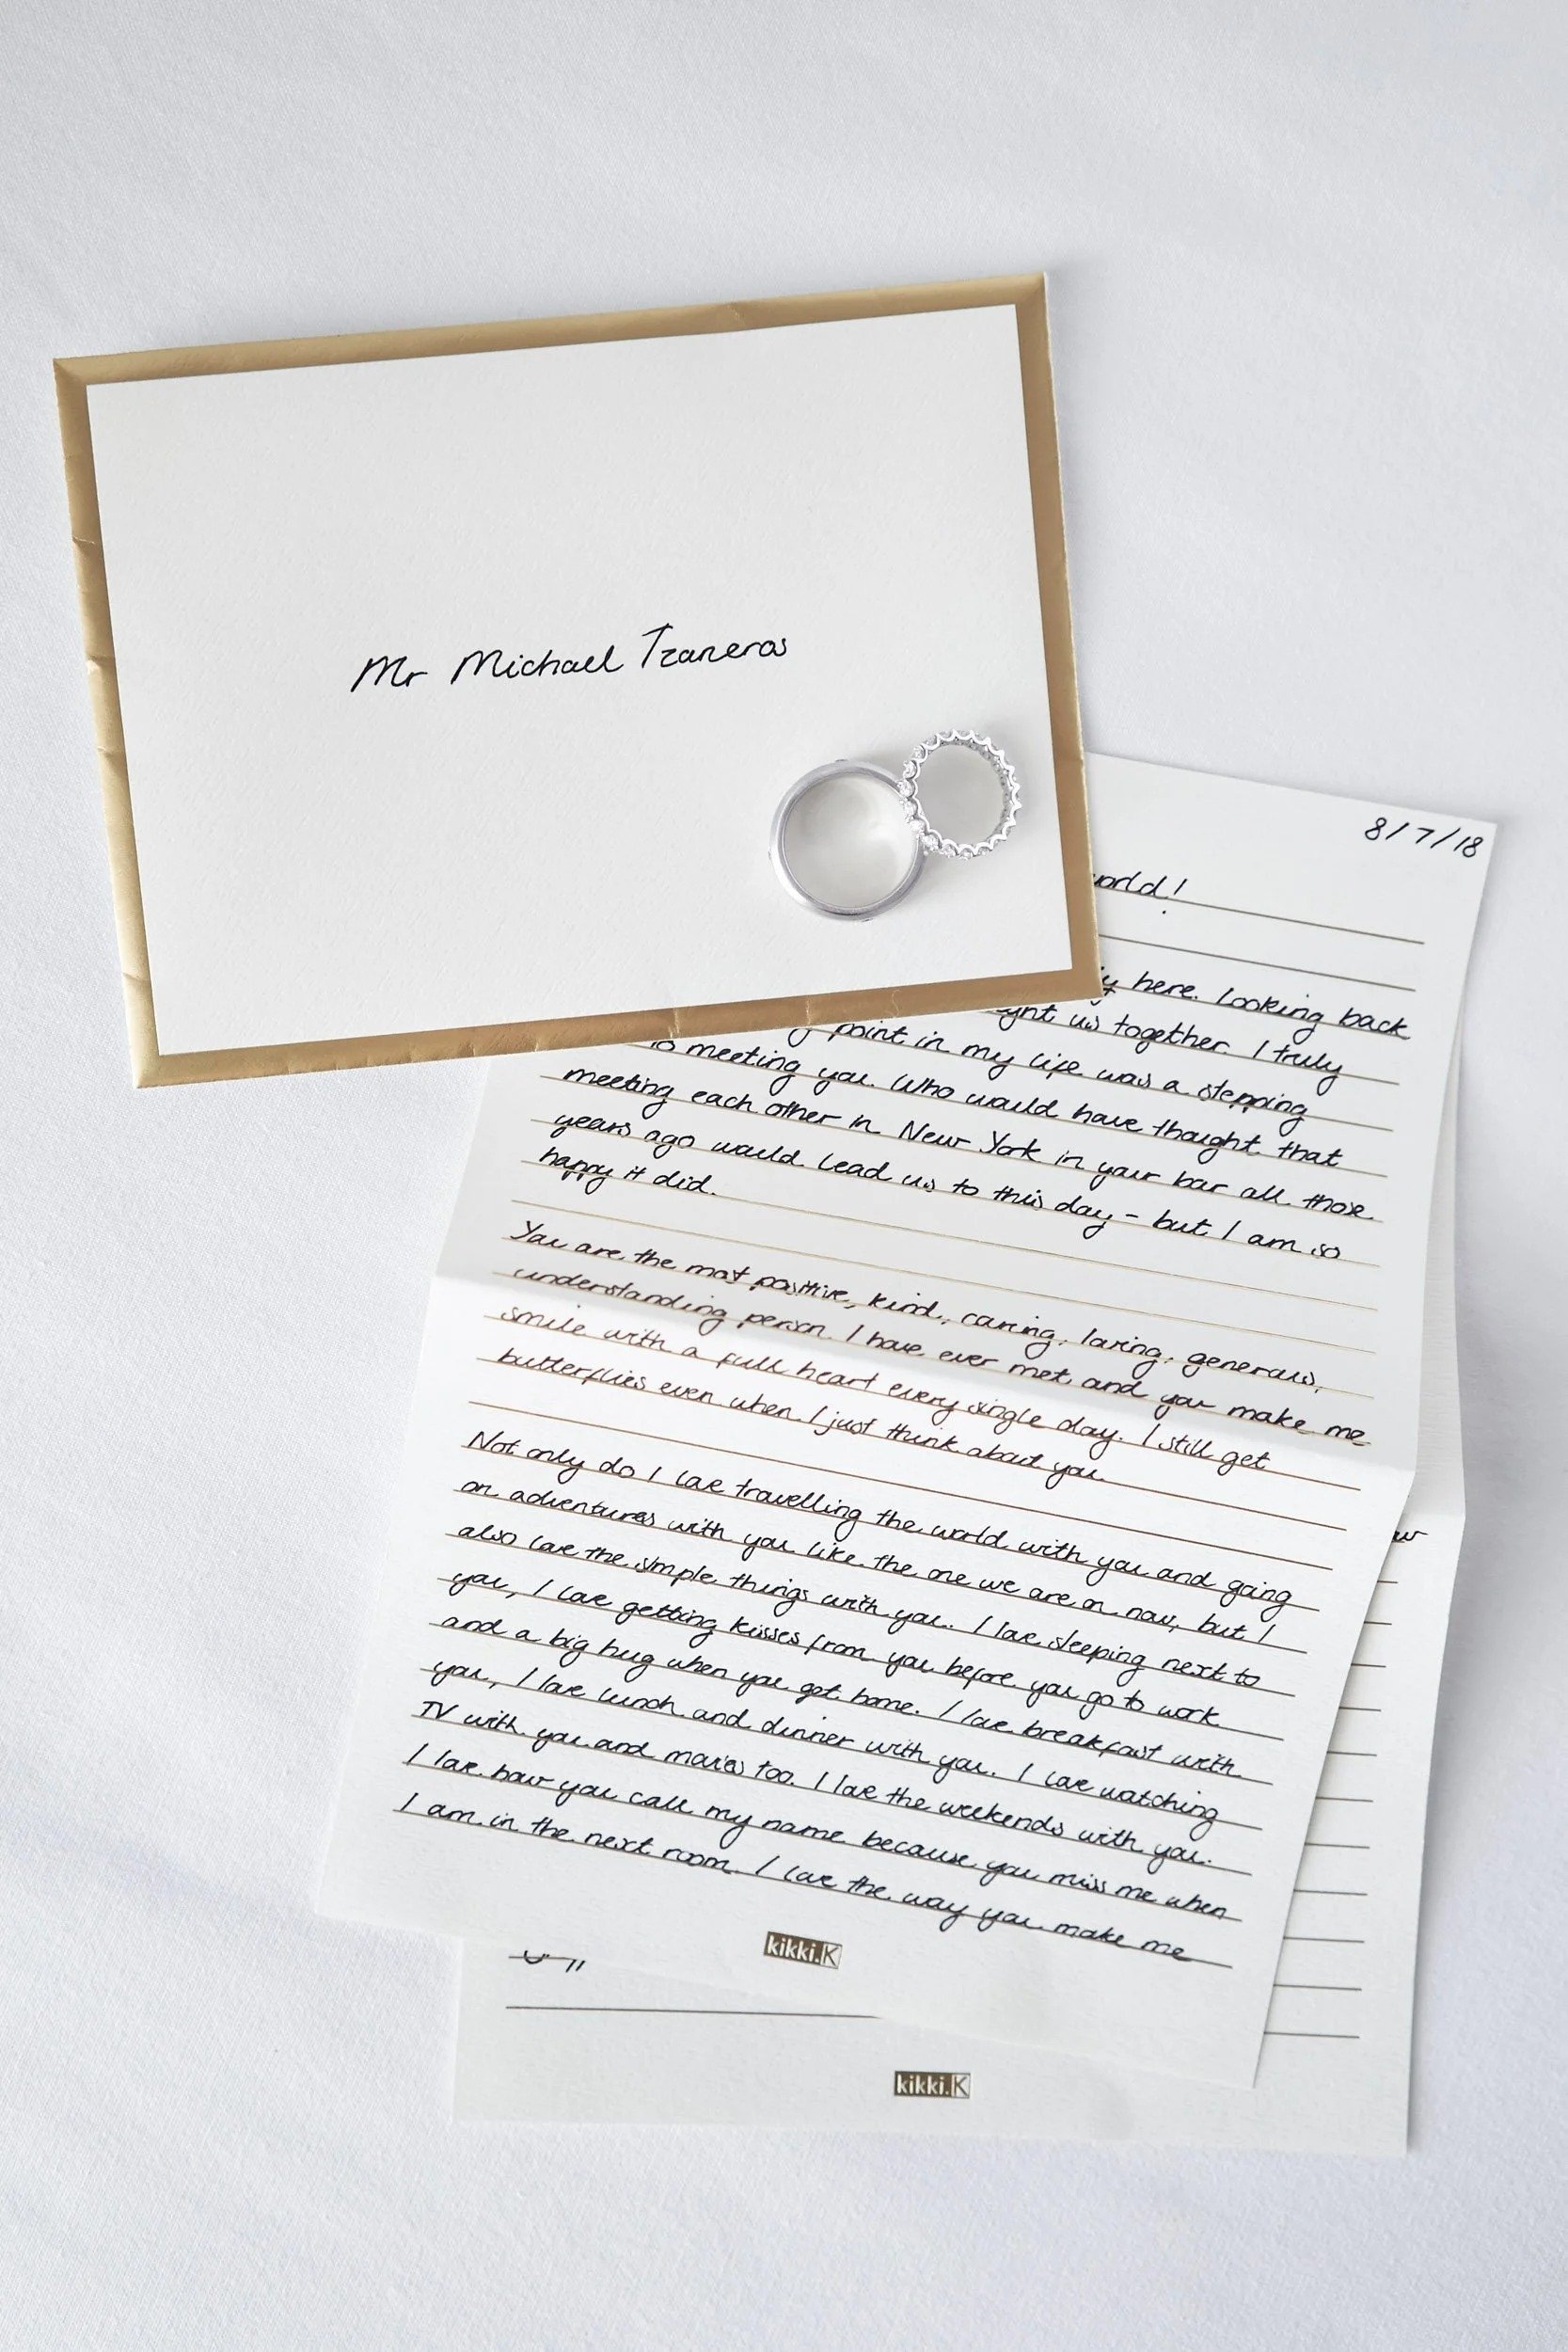 Mr Michael Tzaneros
8/7/18
world!
here. Looking back
us together. I truly
point in my life was a stepping
to meeting you. Who would have thought that
meeting each other in New York in your bar all those
years ago would lead us to this day - but I am so
happy it did.
You are the most positive, kind, caring, loving, generous,
understanding person I have ever met and you make me
smile with a full heart every single day. I still get
butterflies even when I just think about you.
Not only do I love travelling the world with you and going
on adventures with you like the one we are on now, but I
also love the simple things with you. I love sleeping next to
you, I love getting kisses from you before you go to work
and a big hug when you get home. I love breakfast with
you, I love lunch and dinner with you. I love watching
TV with you and movies too. I love the weekends with you.
I love how you call my name because you miss me when
I am in the next room. I love the way you make me
kikki.K
kikki.K